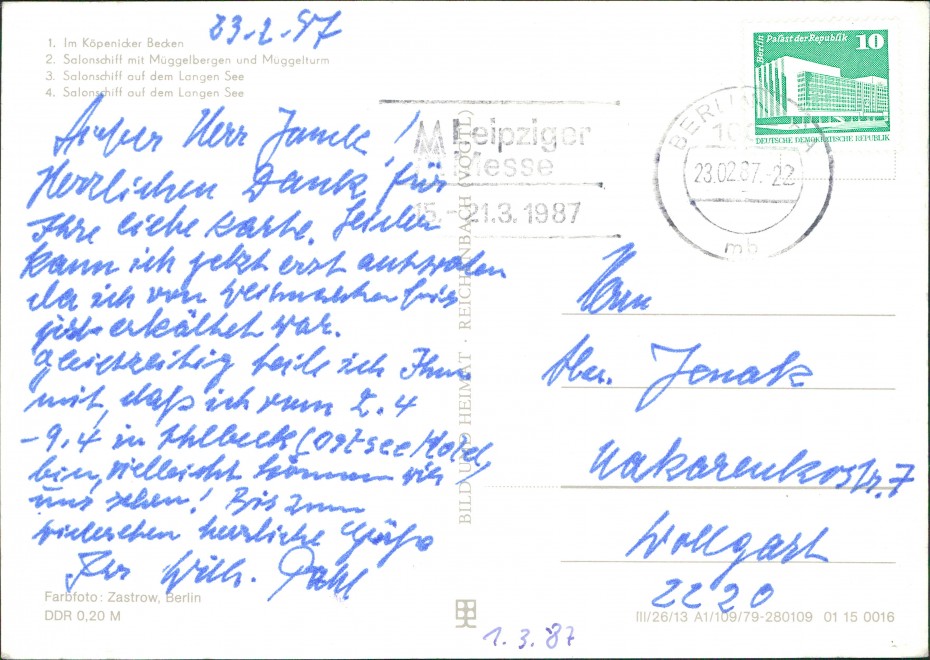 23.2.87
1. Im Köpenicker Becken
2. Salonschiff mit Müggelbergen und Müggelturm
3. Salonschiff auf dem Langen See
4. Salonschiff auf dem Langen See
Herr
Herzlichen Dank für
Ihre liebe Karte. Leider
kann ich jetzt erst antworten
da ich von Weihnachten bis
jetzt erkältet war.
gleichzeitig teile ich Ihnen
mit, daß ich vom 2.4
-9.4 in Ahlbeck (Ostsee Hotel)
bin, vielleicht können wir
uns sehen! Bis zum
wiedersehen herzliche Grüße
Ihr Wilh. Pohl
Farbfoto: Zastrow, Berlin
DDR 0,20 M
BILD UND HEIMAT · REICHENBACH (VOGTL)
1.3.87
Leipziger
Messe
15.-21.3.1987
BERLIN
23.02.87.-22
mb
Berlin Palast der Republik 10
DEUTSCHE DEMOKRATISCHE REPUBLIK
Herrn
Jenak
Makarenkostr. 7
Wollgast
2220
III/26/13 A1/109/79-280109 01 15 0016